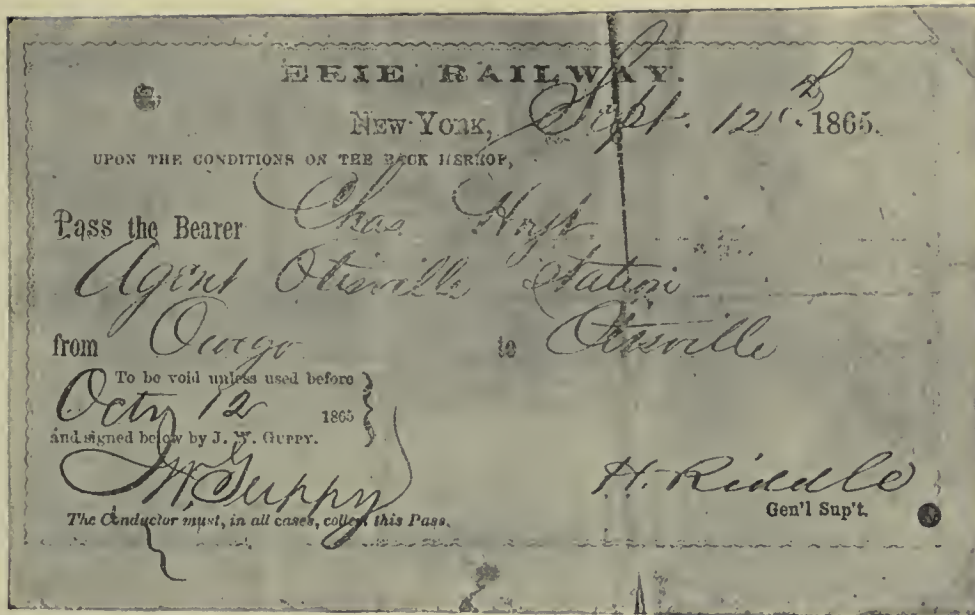 ERIE RAILWAY.
NEW-YORK, Sept. 12th 1865.
UPON THE CONDITIONS ON THE BACK HEREOF,
Pass the Bearer Chas. Hoyt.
Agent Otisville Station
from Owego to Otisville
To be void unless used before
Octr 12 1865
and signed below by J. W. GUPPY.
J W Guppy
H. Riddle
Gen'l Sup't.
The Conductor must, in all cases, collect this Pass.